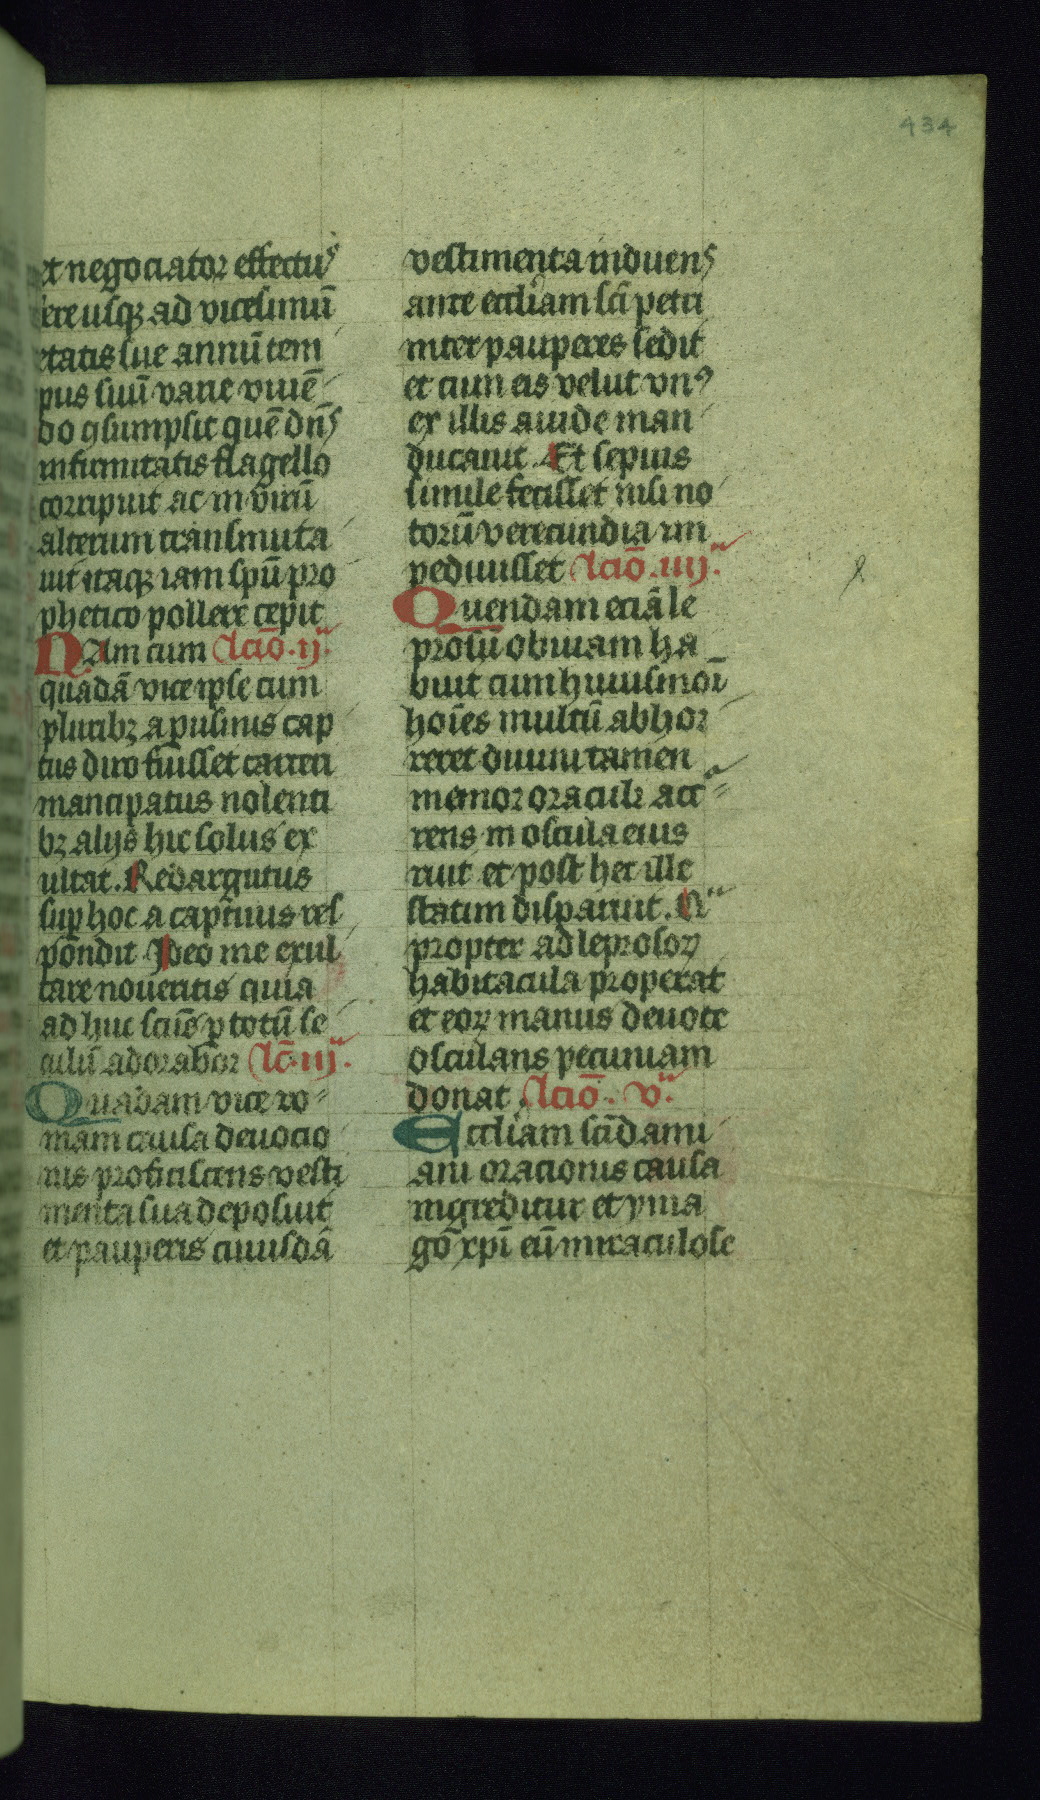 434
et negociator effectꝰ
fere usqꝫ ad vicesimū
etatis sue annū tem
pus suū vane viuē
do ꝯsumpsit quē dn̄s
infirmitatis flagello
corripuit ac in virū
alterum transmuta
uit itaqꝫ iam spū pro
phetico pollere cepit
Nam cum Lcio. ij.ᵃ
quadā vice ipse cum
pluribꝫ a pusinis cap
tus diro fuisset carceri
mancipatus nolenti
bꝫ alijs hic solus ex
ultat. Redargutus
suꝑ hoc a captiuis res
pondit Ideo me exul
tare noueritis quia
ad huc scūs ꝑ totū se
culū adorabor Lc̄. iij.ᵃ
Quadam vice ro
mam causa deuocio
nis proficiscens vesti
menta sua deposuit
et pauperis cuiusdā
vestimenta induens
ante eccliam sci petri
inter pauperes sedit
et cum eis velut vnꝰ
ex illis auide man
ducauit. Et sepius
simile fecisset nisi no
torū verecundia im
pediuisset Lcio. iiij.ᵃ
Quendam eciā le
prosū obuiam ha
buit cum huiusmōi
hoīes multū abhor
reret diuini tamen
memor oraculi accͬ
rens in oscula eius
ruit et post hec ille
statim disparuit. Qᵃ
propter ad leprosoꝝ
habitacula properat
et eoꝝ manus deuote
osculans pecuniam
donat Lcio. v.ᵃ
Eccliam sci dami
ani oracionis causa
ingreditur et yma
go xpi eū miraculose